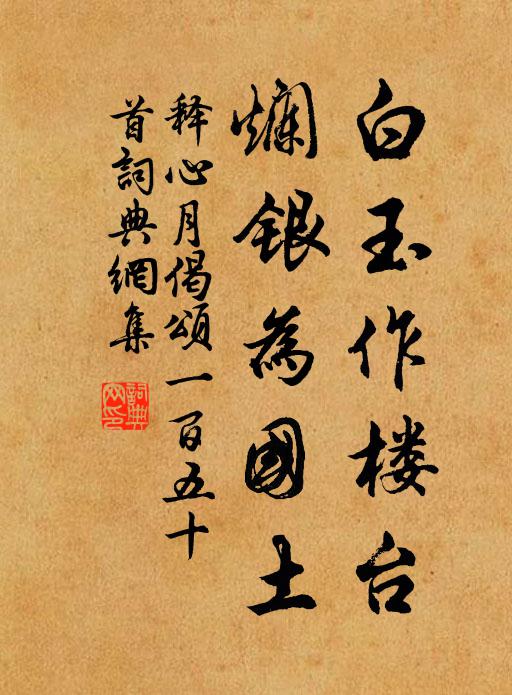 白玉作楼台
爛银為國土
释心月偈頌一百五十
首詞典網集
詞典
网印